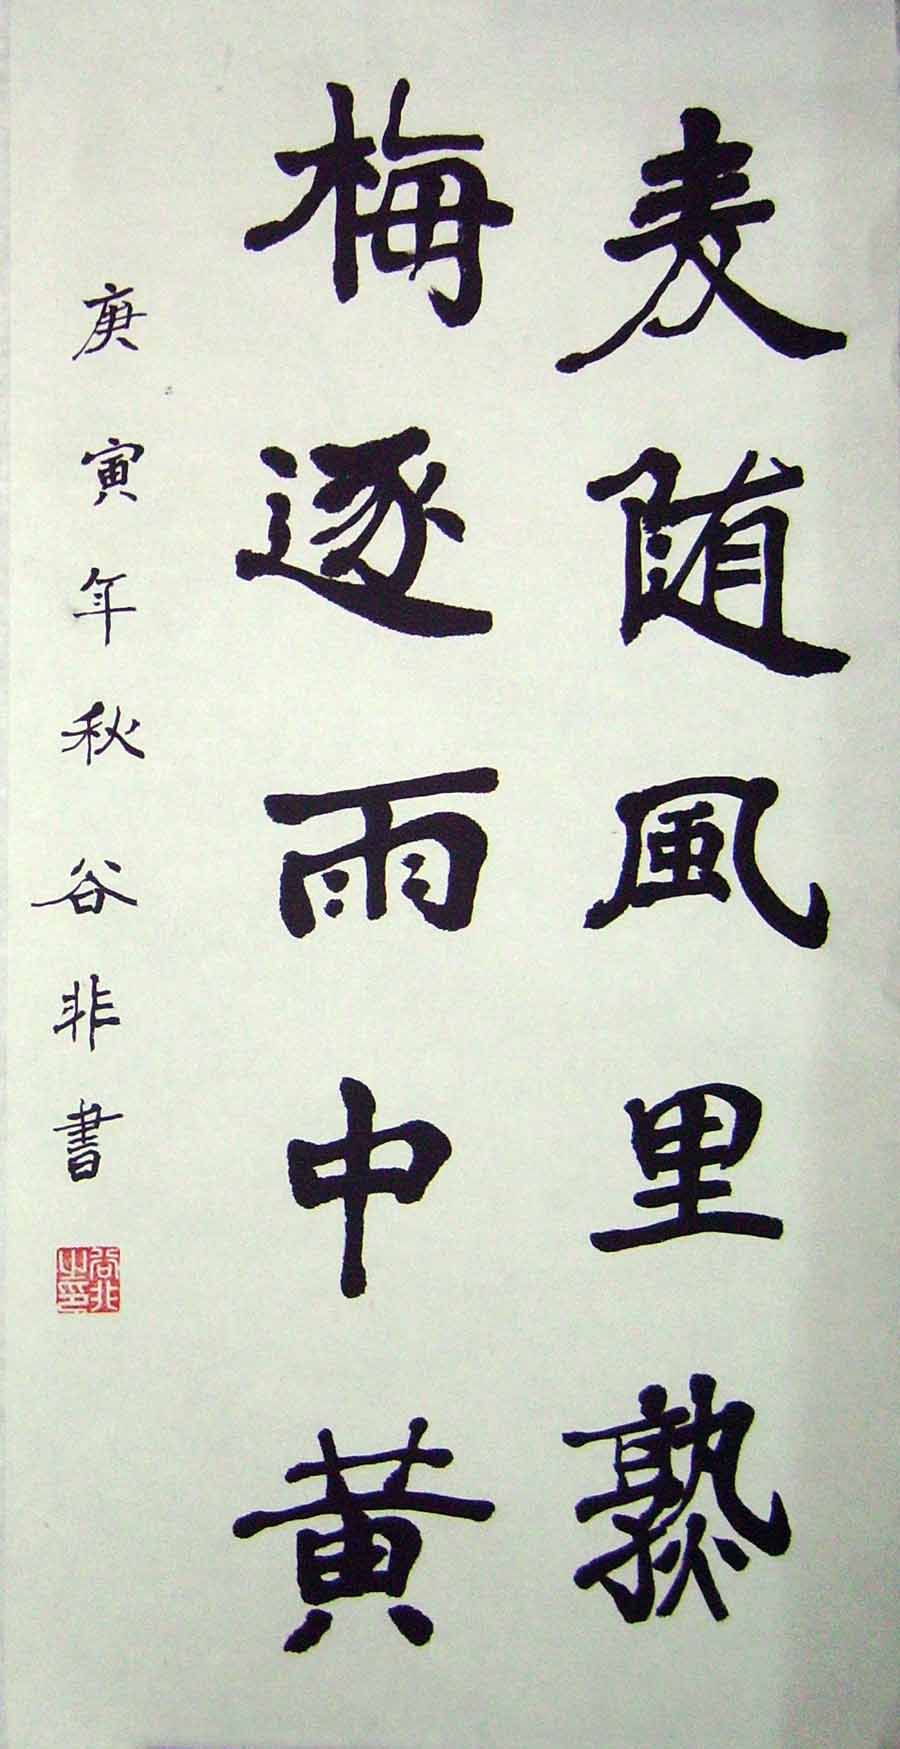 麦随风里熟
梅逐雨中黄
庚寅年秋谷非書
谷非之印